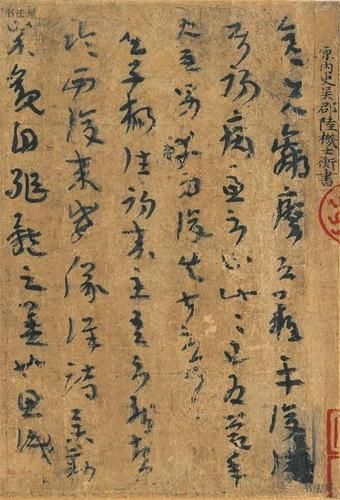 原內史吳郡陸機士衡書
彥先羸瘵恐難平復往
屬初病慮不止此此已為慶承
使唯男幸為復失前憂耳
吳子楊往初來主吾不能盡
臨西復來威儀詳跱舉動
成觀自軀體之美也思識
书法屋
书法屋